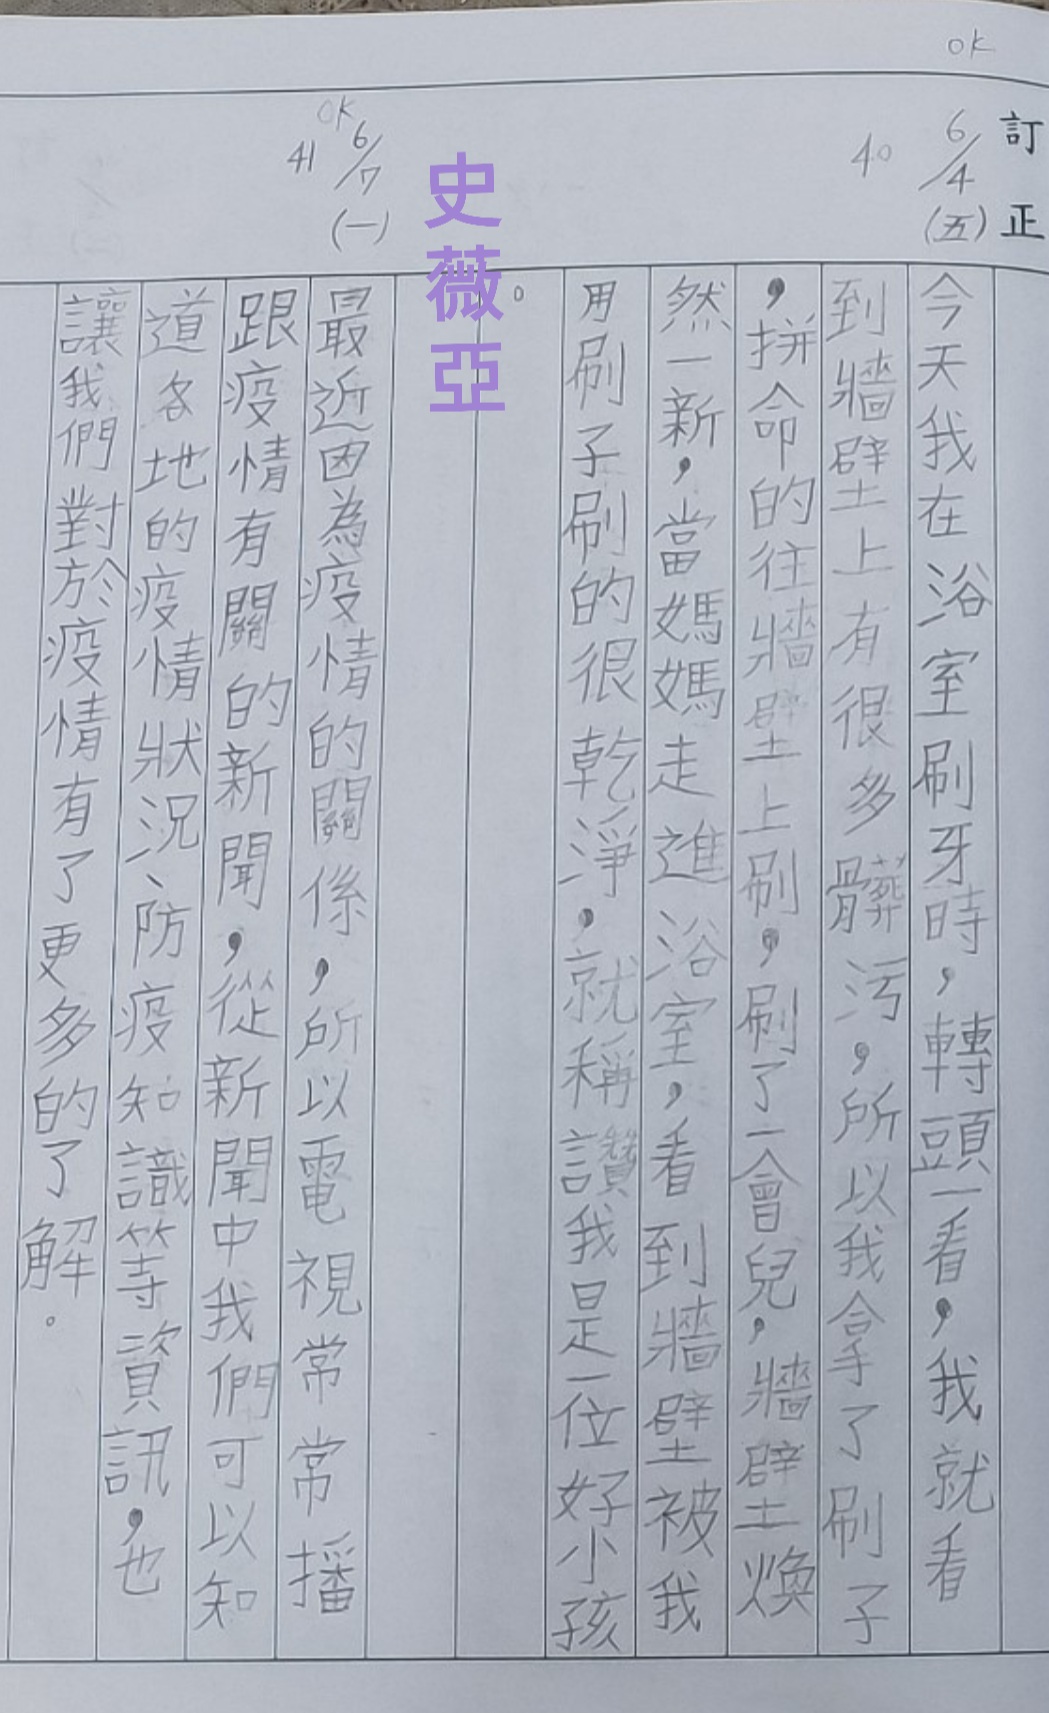 OK
訂正
6/4(五)
40
今天我在浴室刷牙時，轉頭一看，我就看
到牆壁上有很多髒污，所以我拿了刷子
，拼命的往牆壁上刷，刷了一會兒，牆壁煥
然一新，當媽媽走進浴室，看到牆壁被我
用刷子刷的很乾淨，就稱讚我是一位好小孩
。
史薇亞
OK
6/7(一)
41
最近因為疫情的關係，所以電視常常播
跟疫情有關的新聞，從新聞中我們可以知
道各地的疫情狀況、防疫知識等資訊，也
讓我們對於疫情有了更多的了解。